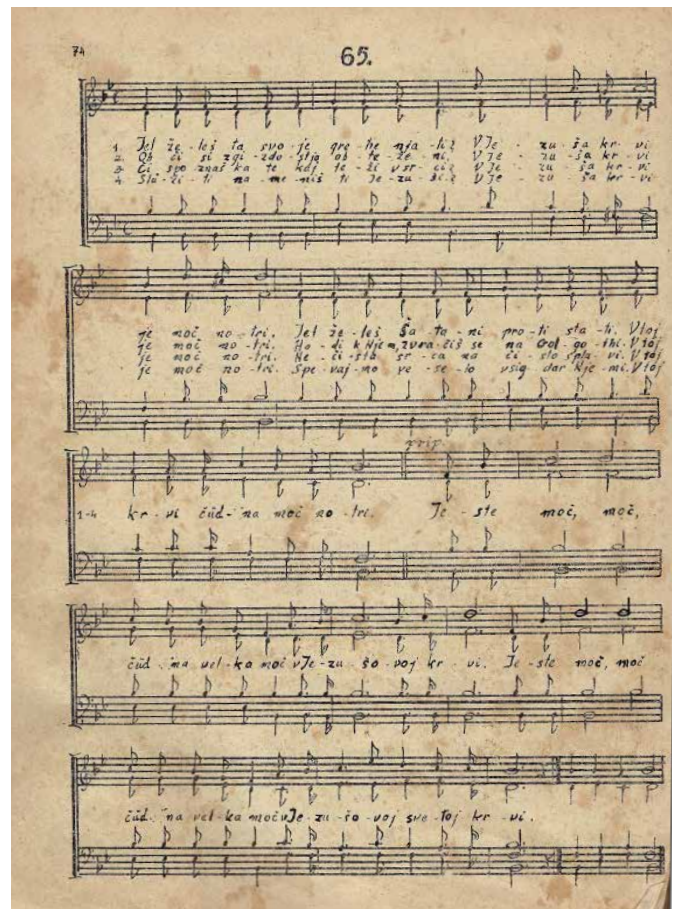 74
65.
1. Jel že-leš ta svo-je gre-he nja-ti? V Je-zu-ša kr-vi
2. Oh či si z gi-zdo-stjo ob-te-že-ni. V Je-zu-ša kr-vi
3. Či spo-znaš ka te kdj te-ži v sr-ci? V Je-zu-ša kr-vi
4. Slü-ži-ti na-me-niš ti Je-zu-ši? V Je-zu-ša kr-vi
je moč no-tri. Jel že-leš Ša-ta-ni pro-ti sta-ti. V toj
je moč no-tri. Ho-di k Njem, zvra-čiš se na Gol-go-thi. V toj
je moč no-tri. Ne-či-sta sr-ca na či-sto spla-vi. V toj
je moč no-tri. Spe-vaj-mo ve-se-lo vsig-dar Nje-mi. V toj
prip.
1-4 kr-vi čüd-na moč no-tri. Je-ste moč, moč,
čüd-na vel-ka moč v Je-zu-šo-voj kr-vi. Je-ste moč, moč
čüd-na vel-ka moč v Je-zu-šo-voj sve-toj kr-vi.